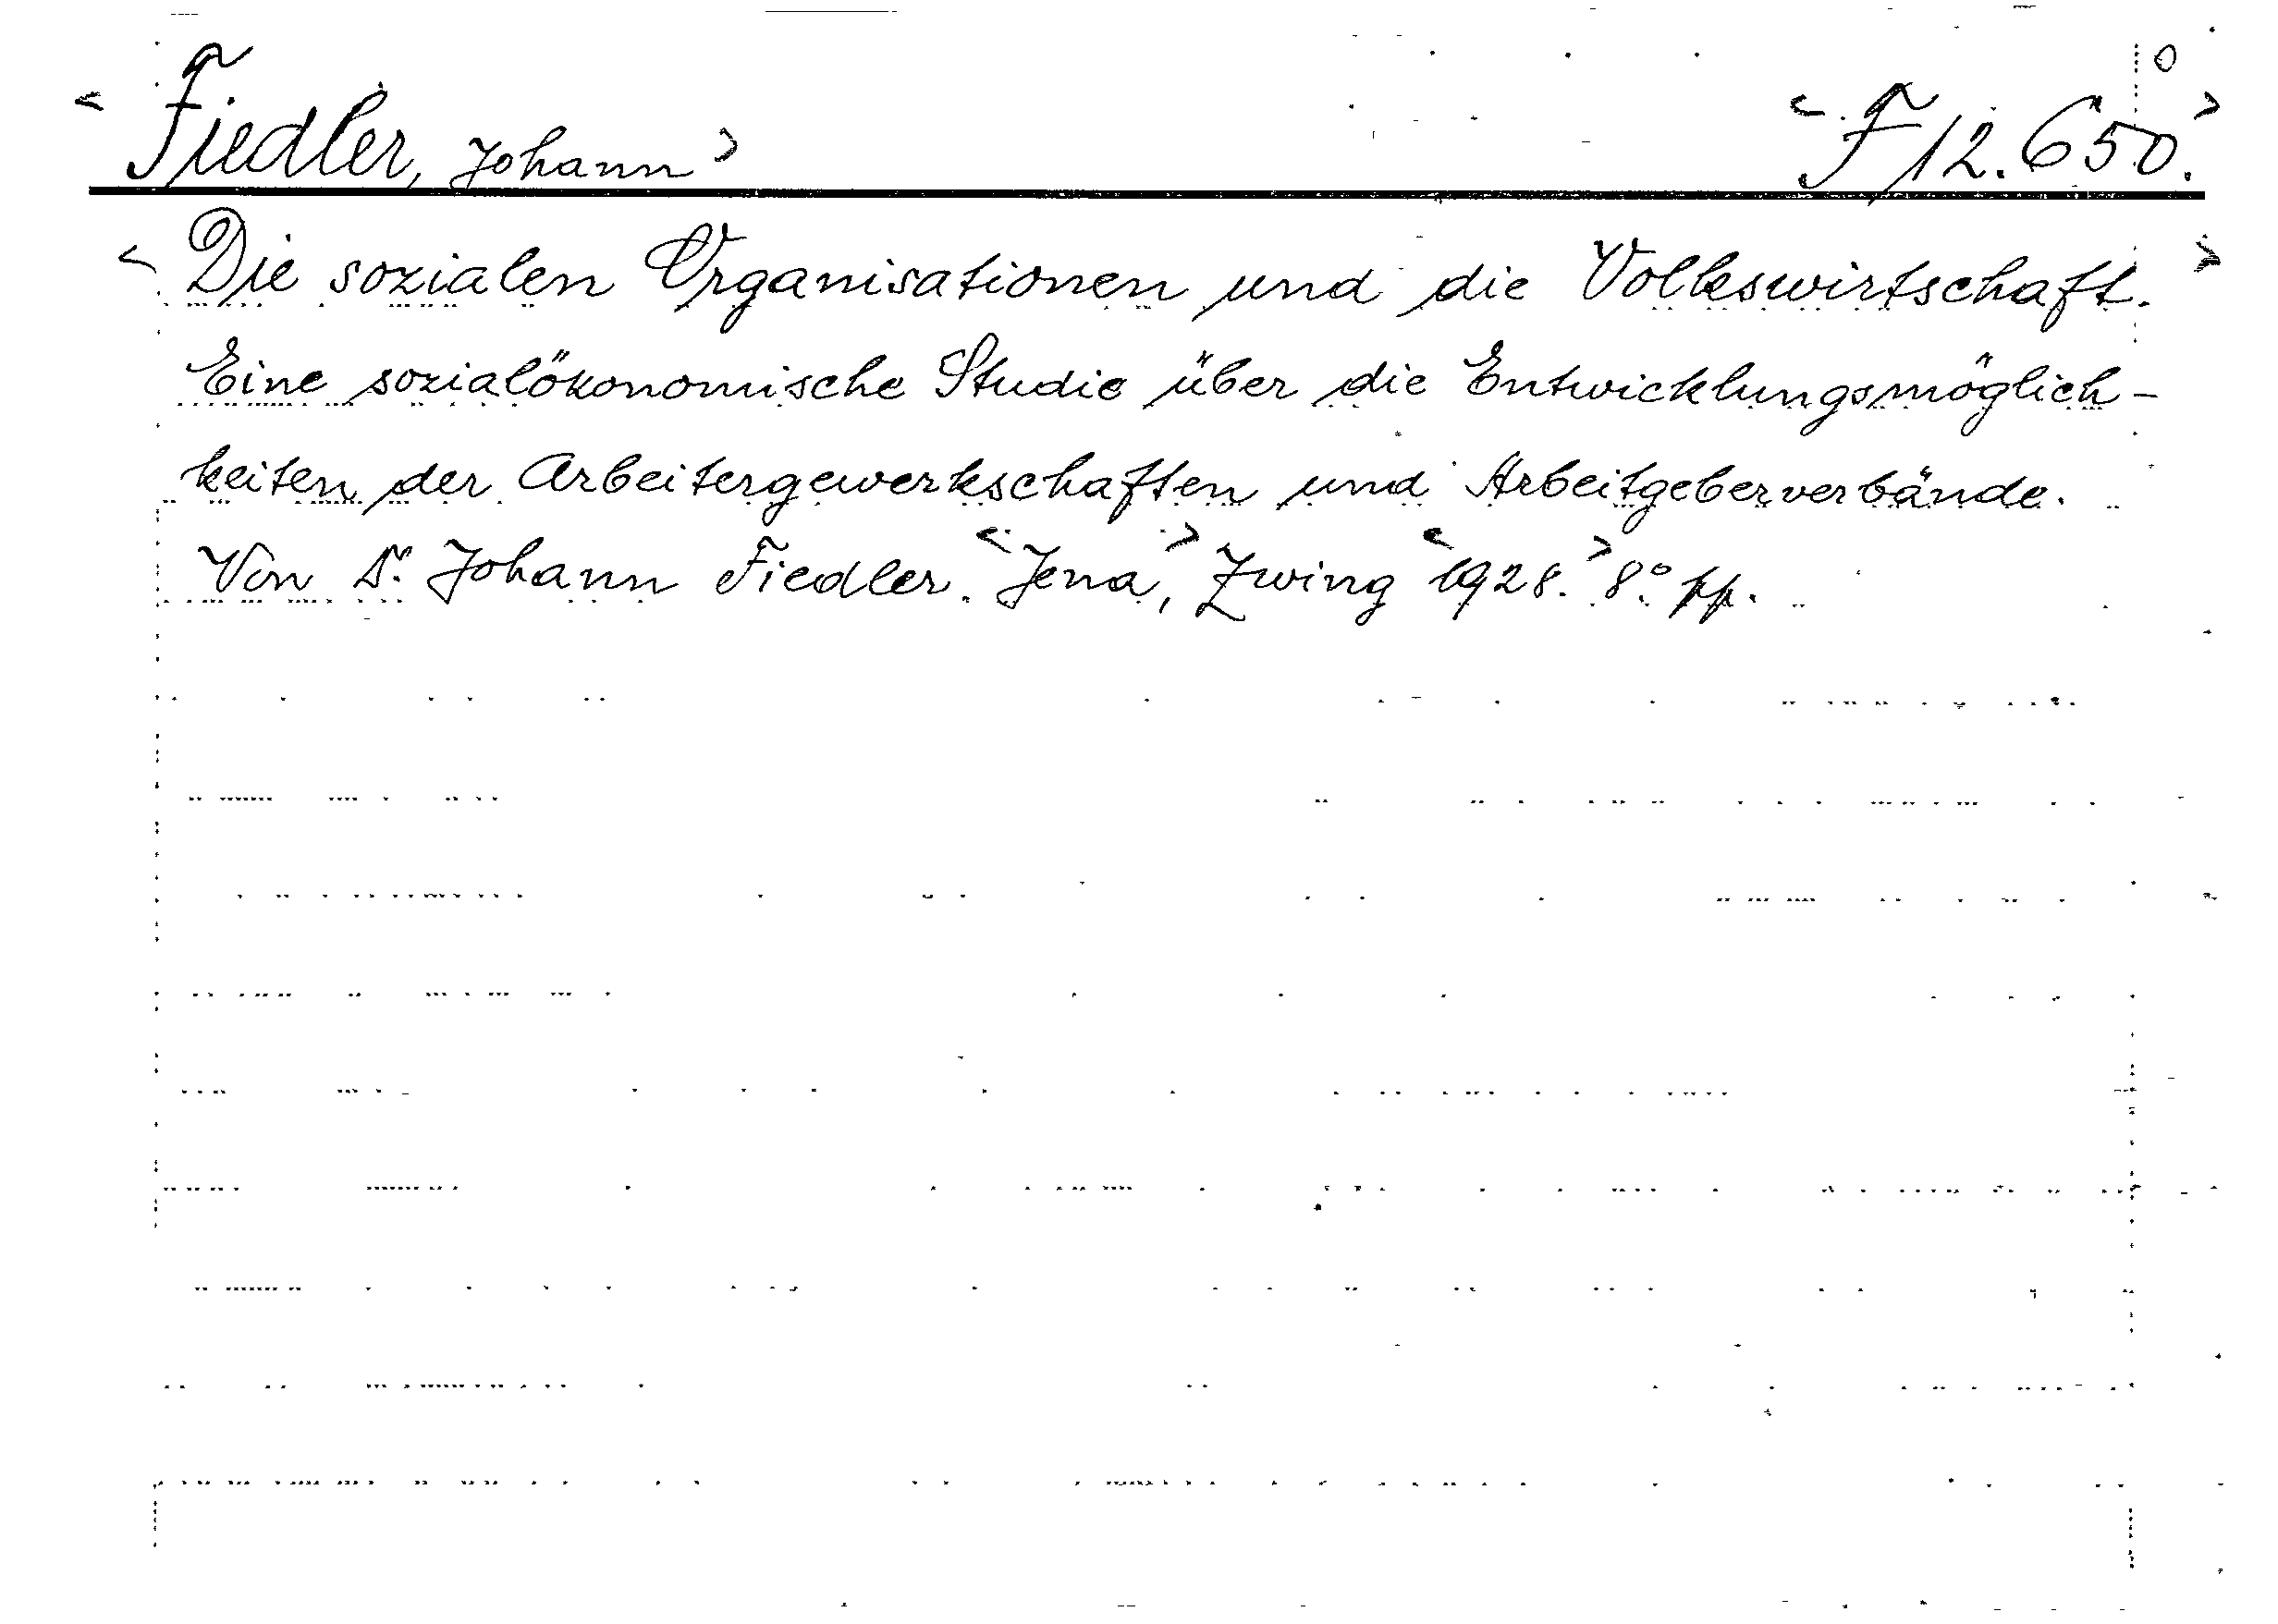 < Fiedler, Johann > < F 12.650. >
< Die sozialen Organisationen und die Volkswirtschaft. >
Eine sozialökonomische Studie über die Entwicklungsmöglich-
keiten der Arbeitergewerkschaften und Arbeitgeberverbände.
Von Dr. Johann Fiedler. <Jena,> Zwing <1928.> 8.° pp.